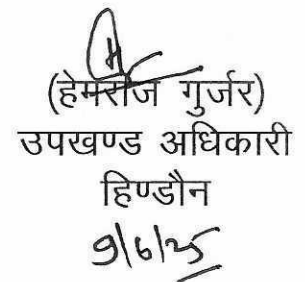 (हेमराज गुर्जर)
उपखण्ड अधिकारी
हिण्डौन
9/6/25